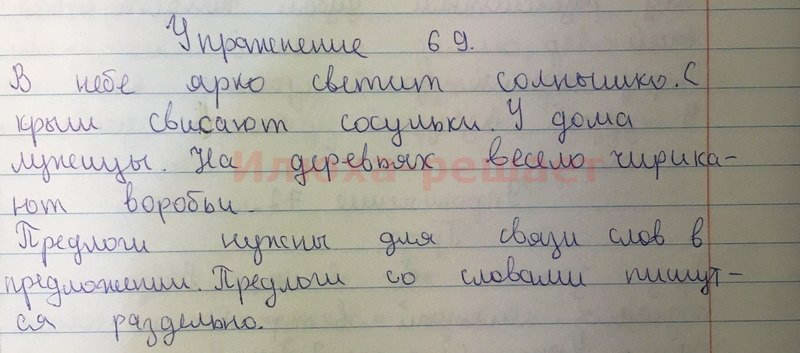 Упражнение 69.
В небе ярко светит солнышко. С
крыш свисают сосульки. У дома
лужицы. На деревьях весело чирика-
ют воробьи.
Илюха решает
Предлоги нужны для связи слов в
предложении. Предлоги со словами пишут-
ся раздельно.